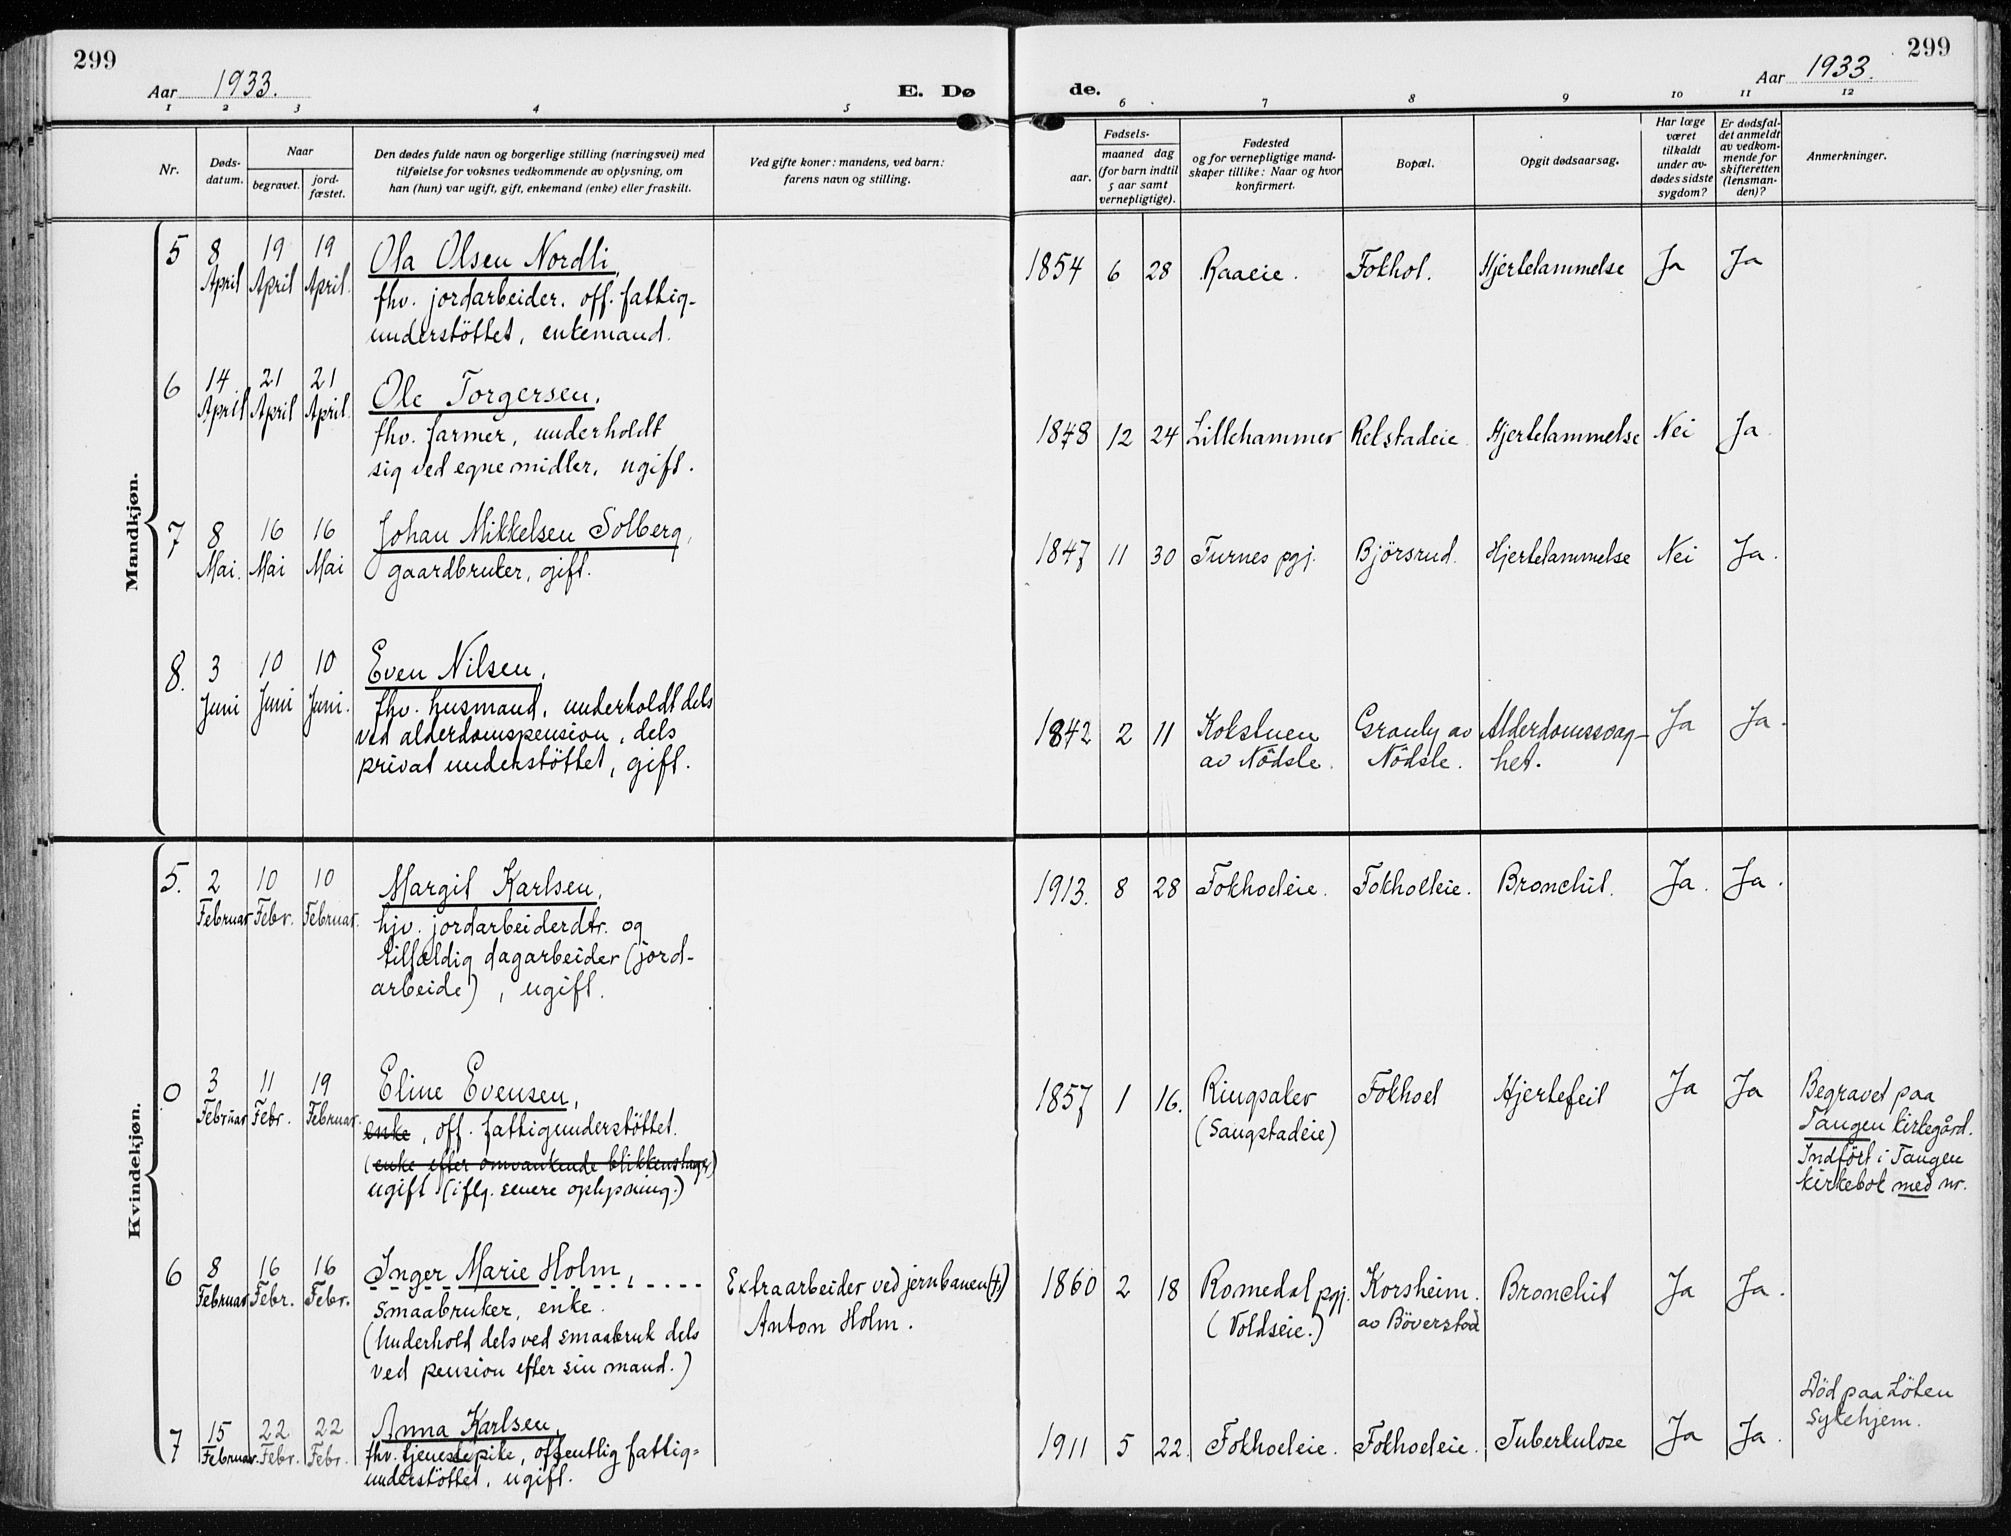 299
Aar 1933.
E. Dø
de.
Aar 1933.
299
1 2 3 4 5 6 7 8 9 10 11 12
Nr.
Døds-
datum.
Naar
begravet.
jord-
fæstet.
Den dødes fulde navn og borgerlige stilling (næringsvei) med
tilføielse for voksnes vedkommende av oplysning, om
han (hun) var ugift, gift, enkemand (enke) eller fraskilt.
Ved gifte koner: mandens, ved barn:
farens navn og stilling.
Fødsels-
aar.
maaned dag
(for barn indtil
5 aar samt
vernepligtige).
Fødested
og for vernepligtige mand-
skaper tillike: Naar og hvor
konfirmert.
Bopæl.
Opgit dødsaarsag.
Har læge
været
tilkaldt
under av-
dødes sidste
sygdom?
Er dødsfal-
det anmeldt
av vedkom-
mende for
skifteretten
(lensman-
den)?
Anmerkninger.
Mandkjøn.
5 8 April 19 April 19 April.
Ola Olsen Nordli,
fhv. jordarbeider. off. fattig-
understöttet, enkemand.
1854 6 28 Raaeie. Fokhol. Hjertelammelse Ja Ja
6 14 April 21 April 21 April.
Ole Torgersen,
fhv. farmer, underholdt
sig ved egne midler, ugift.
1848 12 24 Lillehammer Relstadeie Hjertelammelse Nei Ja.
7 8 Mai. 16 Mai 16 Mai
Johan Mikkelsen Solberg,
gaardbruker, gift.
1847 11 30 Furnes pgj. Björsrud. Hjertelammelse Nei Ja.
8. 3 Juni 10 Juni 10 Juni.
Even Nilsen,
fhv. husmand, underholdt dels
ved alderdomspension, dels
privat understöttet, gift.
1842 2 11 Kokstuen Granly av Alderdomssvag- Ja Ja.
av Nödsle. Nödsle. het.
Kvindekjøn.
5. 2 Februar 10 Febr. 10 Februar.
Margit Karlsen,
hjv. jordarbeiderdtr. og
tilfældig dagarbeider (jord-
arbeide), ugift.
1913. 8 28 Fokholeie. Fokholeie. Bronchit. Ja. Ja.
0 3 Februar 11 Febr. 19 Februar.
Eline Evensen,
enke, off. fattigunderstöttet.
(enke efter omvankende blikkenslager)
ugift (iflg. senere oplysning.)
1857 1 16. Ringsaker Fokhoel Hjertefeil Ja Ja
(Saugstadeie)
Begravet paa
Tangen kirkegård.
Indfört i Tangen
kirkebok med nr.
6 8 Februar 16 Febr. 16 Febr.
Inger Marie Holm,
smaabruker, enke.
(Underhold dels ved smaabruk dels
ved pension efter sin mand.)
Extraarbeider ved jernbanen (†)
Anton Holm.
1860 2 18 Romedal pgj. Korsheim. Bronchit Ja Ja.
(Voldseie.) av Böverstad
7 15 Februar. 22 Febr. 22 Febr.
Anna Karlsen,
fhv. tjenestepike, offentlig fattig=
understöttet, ugift.
1911 5 22. Fokhoeleie. Fokhoeleie. Tuberkulose Ja Ja.
Död paa Löten
sykehjem.